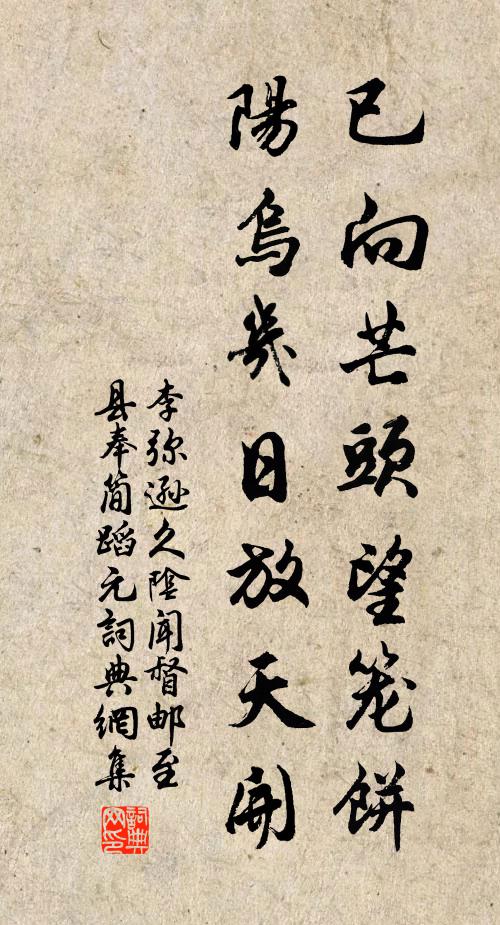 已向芒頭望笼餅
陽烏幾日放天開
李弥遜久陰聞督邮至
县奉简蹈元詞典網集
詞典网印